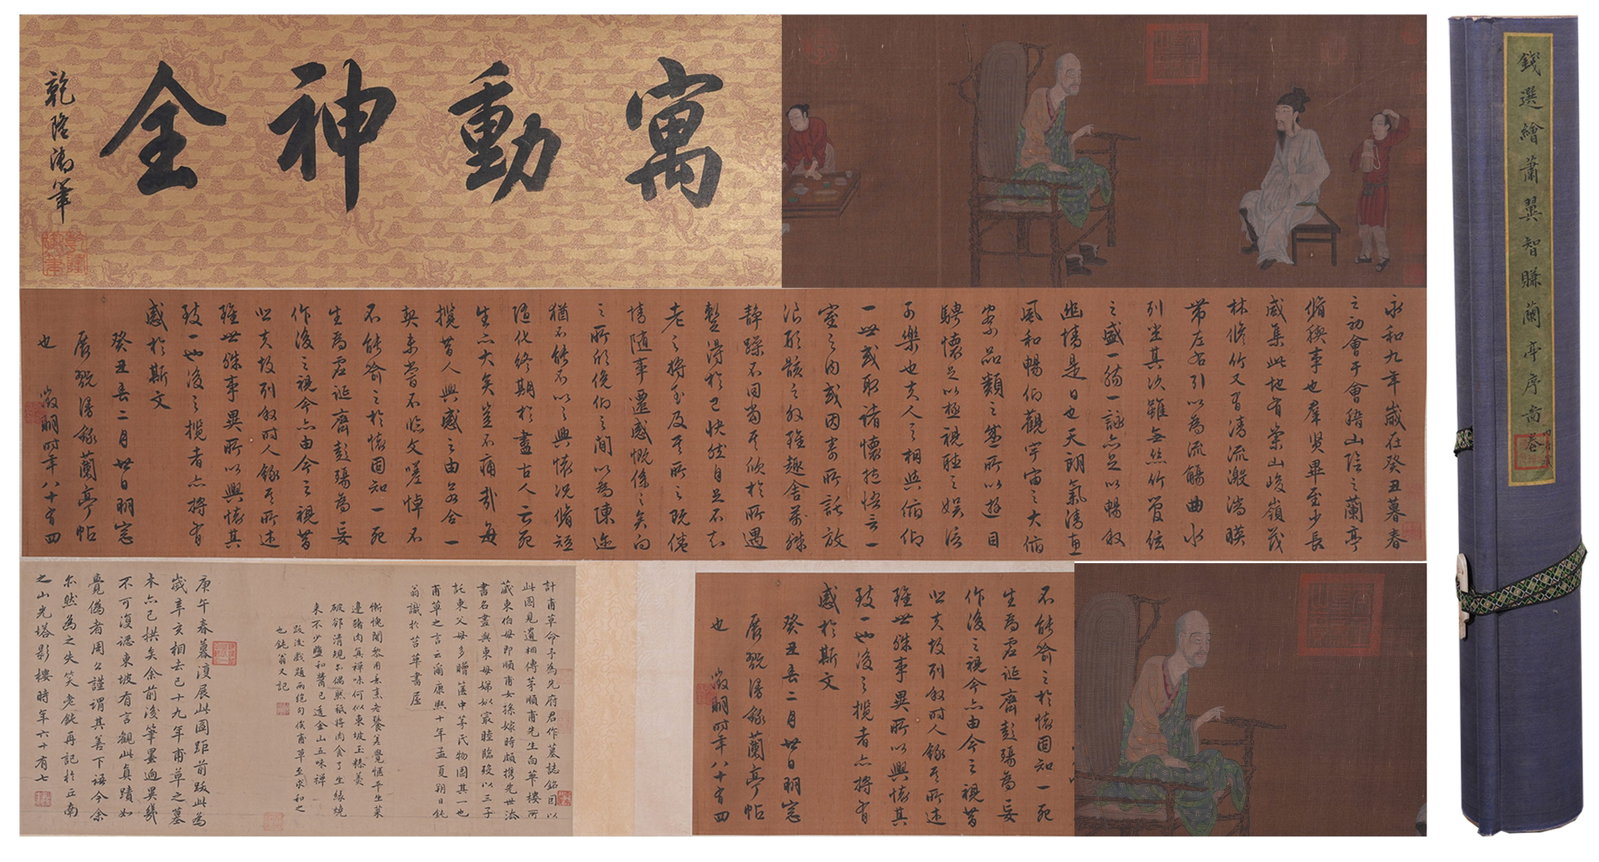 寓動神全
乾隆御筆
錢選繪蕭翼智賺蘭亭序
永和九年歲在癸丑暮春
之初會于會稽山陰之蘭亭
脩稧事也羣賢畢至少長
咸集此地有崇山峻嶺茂
林脩竹又有清流激湍暎
帶左右引以為流觴曲水
列坐其次雖無絲竹管絃
之盛一觴一詠亦足以暢敘
幽情是日也天朗氣清惠
風和暢仰觀宇宙之大俯
察品類之盛所以遊目
騁懷足以極視聽之娛信
可樂也夫人之相與俯仰
一世或取諸懷抱悟言一
室之內或因寄所託放
浪形骸之外雖趣舍萬殊
靜躁不同當其欣於所遇
暫得於己快然自足不知
老之將至及其所之既倦
情隨事遷感慨係之矣向
之所欣俛仰之間以為陳迹
猶不能不以之興懷況脩短
隨化終期於盡古人云死
生亦大矣豈不痛哉每
攬昔人興感之由若合一
契未嘗不臨文嗟悼不
不能喻之於懷固知一死
生為虛誕齊彭殤為妄
作後之視今亦由今之視昔
悲夫故列敘時人錄其所述
雖世殊事異所以興懷其
致一也後之攬者亦將有
感於斯文
癸丑二月廿日明窓
展玩漫錄蘭亭帖
也 徵明時年八十有四
不能喻之於懷固知一死
生為虛誕齊彭殤為妄
作後之視今亦由今之視昔
悲夫故列敘時人錄其所述
雖世殊事異所以興懷其
致一也後之攬者亦將有
感於斯文
癸丑二月廿日明窓
展玩漫錄蘭亭帖
也 徵明時年八十有四
計甫草命予為先府君作墓誌銘因以
此圖見遺相傳茅順甫先生白華樓所
藏東伯母即順甫女孫嫁時頗攜先世法
書名畫與東母娣姒最睦臨歿以三子
託東父母多贈篋中等氏物圖其一也
甫草之言云爾康熙十年孟夏朔日鈍
翁識於苕華書屋
破卻清規亦偶然秪將肉食了生緣燒
來不少鹽和醬已透金山五味禪
跋後戲題兩絕句俟甫草至求和之
也鈍翁又記
庚午春暮復展此圖距前跋此為
歲辛亥相去已十九年甫草之墓
木亦已拱矣余前後筆墨迥異幾
不可復認東坡有言觀此真蹟如
覺偽者周公謹謂其善下語今余
亦然為之失笑老鈍再記於丘南
之山光塔影樓時年六十有七